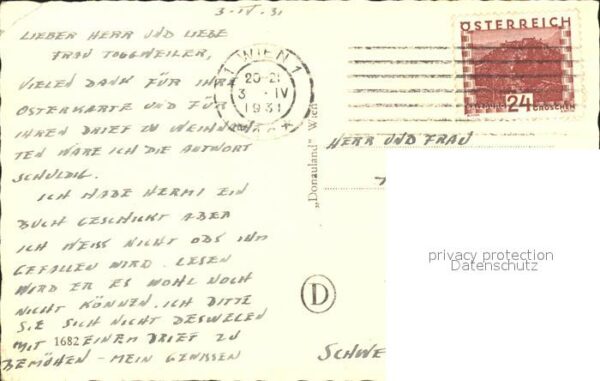 3-IV.31
LIEBER HERR UND LIEBE
FRAU TOGGWEILER,
VIELEN DANK FÜR IHRE
OSTERKARTE UND FÜR
IHREN BRIEF ZU WEIHNACH
TEN WÄRE ICH DIE ANTWORT
SCHULDIG.
ICH HABE HERMI EIN
BUCH GESCHICKT ABER
ICH WEISS NICHT OBS IHM
GEFALLEN WIRD. LESEN
WIRD ER ES WOHL NOCH
NICHT KÖNNEN. ICH BITTE
SIE SICH NICHT DESWEGEN
MIT EINEM BRIEF ZU
BEMÜHEN - MEIN GEWISSEN
1682
1 WIEN 1
20-21
3 · IV
1931
ÖSTERREICH
24
GROSCHEN
„Donauland" Wien
HERR UND FRAU
D
SCHWE
privacy protection
Datenschutz